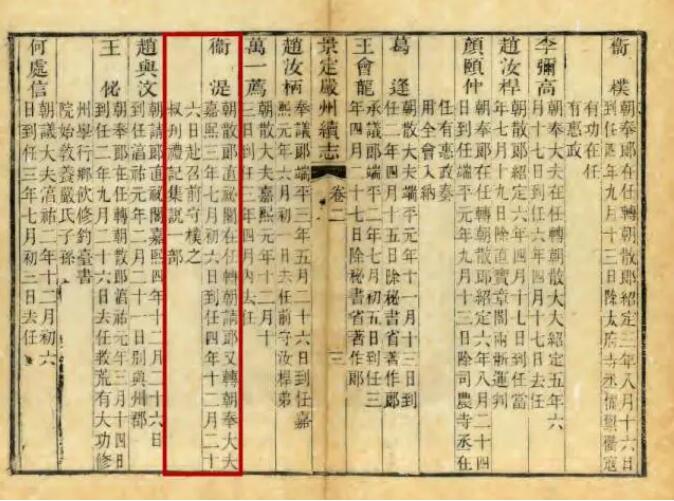 衞樸 朝奉郎在任轉朝散郎紹定三年八月十六日
到任四年九月十三日除太府寺丞禦衢寇
有功在任
有惠政
李彌高 朝奉大夫在任轉朝散大夫紹定五年六
月十七日到任六年四月十七日去任
趙汝捍 朝奉郎紹定六年四月十七日到任當
年七月十九日除直寶章閣兩浙運判
顏頤仲 朝奉郎在任轉朝散郎紹定六年八月二十四
日到任端平元年九月十三日除司農寺丞在
任有惠政奏
用全會入納
葛逢 朝散大夫端平元年十一月十三日到
任年四月十五日除秘書省著作郎
王會龍 承議郎端平二年七月初五日到任三
年四月二十七日除秘書省著作郎
景定嚴州續志 卷二 三
趙汝柄 奉議郎端平三年五月二十六日到任嘉
熙元年六月初一日去任前守汝捍弟
萬一薦 朝散大夫嘉熙元年十二月十
三日到任三年四月內去任
衞湜 朝散郎直祕閣在任轉朝請郎又轉朝奉大夫
嘉熙三年七月初六日到任四年十二月二十
六日赴召前守樸之
叔刋禮記集說一部
趙與汶 朝請郎直祕閣嘉熙四年十二月二十六日
到任淳祐元年二月二十一日別與州郡
王佖 朝奉郎在任轉朝散郎淳祐元年三月十四日
到任二年九月二十六日去任救荒有大功修
州學行鄉飲修釣臺書
院始敎養嚴氏子孫
何處信 朝議大夫淳祐二年十二月初六
日到任三年七月初三日去任